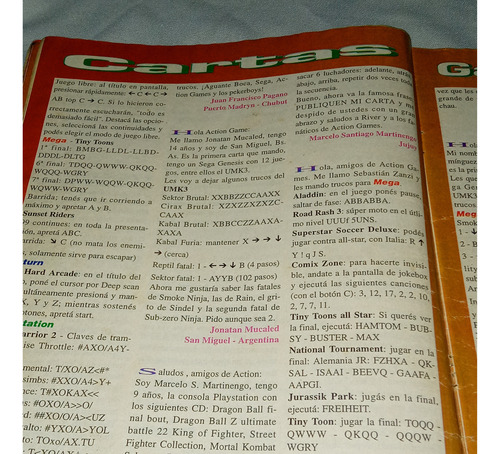 Cartas
Juego libre: al título en pantalla,
presionar rápidamente: ← C ← C →
AB top C → C. Si lo hicieron co-
rrectamente escucharán, "todo es
demasiado fácil". Destacá las opcio-
nes, seleccioná las continuidades y
podés elegir el modo de juego libre.
Mega - Tiny Toons
1ª final: BMBG-LLDL-LLBD-
DDDL-DLTG
6ª final: TDQQ-QWWW-QKQQ-
WQQQ-WGRY
7ª final: DPWW-WQQW-QKQQ-
WQWW-WGRY
Barrida: tenés que ir corriendo a
máximo y apretar A y B.
Sunset Riders
99 continues: en toda la presenta-
ción, apretá ABC.
Barrida: ↘ C (no mata los enemi-
os, solamente sirve para escapar)
turn
Hard Arcade: en el título del
o, poné el cursor por Deep scan
ultáneamente presioná y man-
X, Y y Z; mientras sostenés
otones, apretá start.
tation
arrior 2 - Claves de tram-
ise Throttle: #AXO/A4Y-
mental: T/XO/AZ<#*
simbs: #XXO/A4>Y+
ce: T#XOKAX<<
s: #OXO/A>>O/
d: ##XO/O><UZ
alto: #YXO/A>YOL
to: TOxo/AX.TU
trucos. ¡Aguante Boca, Sega, Ac-
tion Games y los pekerboys!
Juan Francisco Pagano
Puerto Madryn - Chubut
Hola Action Game:
Me llamo Jonatan Mucaled, tengo
14 años y soy de San Miguel, Bs.
As. Es la primera carta que mando,
tengo un Sega Genesis con 12 jue-
gos, entre ellos el UMK3.
Les voy a dejar algunos trucos del
UMK3
Sektor Brutal: XXBBZZCCAAXX
Cirax Brutal: XZXZZXZXZC-
CAAX
Kabal Brutal: XBBCZZAAXA-
XAXA
Kabal Furia: mantener X → → ↓
↓ → (cerca)
Reptil fatal: 1 - ← → ↓ B (4 pasos)
Sektor fatal: 1 - AYYB (102 pasos)
Ahora me gustaría saber las fatales
de Smoke Ninja, las de Rain, el grito
de Sindel y la segunda fatal de
Sub-zero Ninja. Pido aunque sea 2.
Jonatan Mucaled
San Miguel - Argentina
Saludos, amigos de Action:
Soy Marcelo S. Martinengo, tengo
9 años, la consola Playstation con
los siguientes CD: Dragon Ball fi-
nal bout, Dragon Ball Z ultimate
battle 22 King of Fighter, Street
Fighter Collection, Mortal Kombat
sacar 6 luchadores: adelante, atrás,
abajo, arriba, repetir dos veces toda
la secuencia.
Bueno, ahora va la famosa frase
PUBLIQUEN MI CARTA y me
despido de ustedes con un gran
abrazo y saludos a River y a los fa-
náticos de Action Games.
Marcelo Santiago Martinengo
Jujuy
Hola, amigos de Action Ga-
mes. Me llamo Sebastián Zanzi y
les mando trucos para Mega.
Aladdin: en el juego ponés pausa y
saltar de fase: ABBABBA.
Road Rash 3: súper moto en el últi-
mo nivel UUUf 5UNS.
Superstar Soccer Deluxe: podés
jugar contra all-star, con Italia: R ↑
Y ! q J S.
Comix Zone: para hacerte invisi-
ble, andate a la pantalla de jokebox
y ejecutá las siguientes canciones
(con el botón C): 3, 12, 17, 2, 2, 10,
2, 7, 7, 11.
Tiny Toons all Star: Si querés ver
la final, ejecutá: HAMTOM - BUB-
SY - BUSTER - MAX
National Tournament: jugar en la
final: Alemania JR: FZHXA - QK-
SAL - ISAAI - BEEVQ - GAAFA -
AAPGI.
Jurassik Park: jugás en la final,
ejecutá: FREIHEIT.
Tiny Toon: jugar la final: TOQQ -
QWWW - QKQQ - QQQW -
WGRY
G
vez que les
grande de
chau.
Hola
Mi nomb